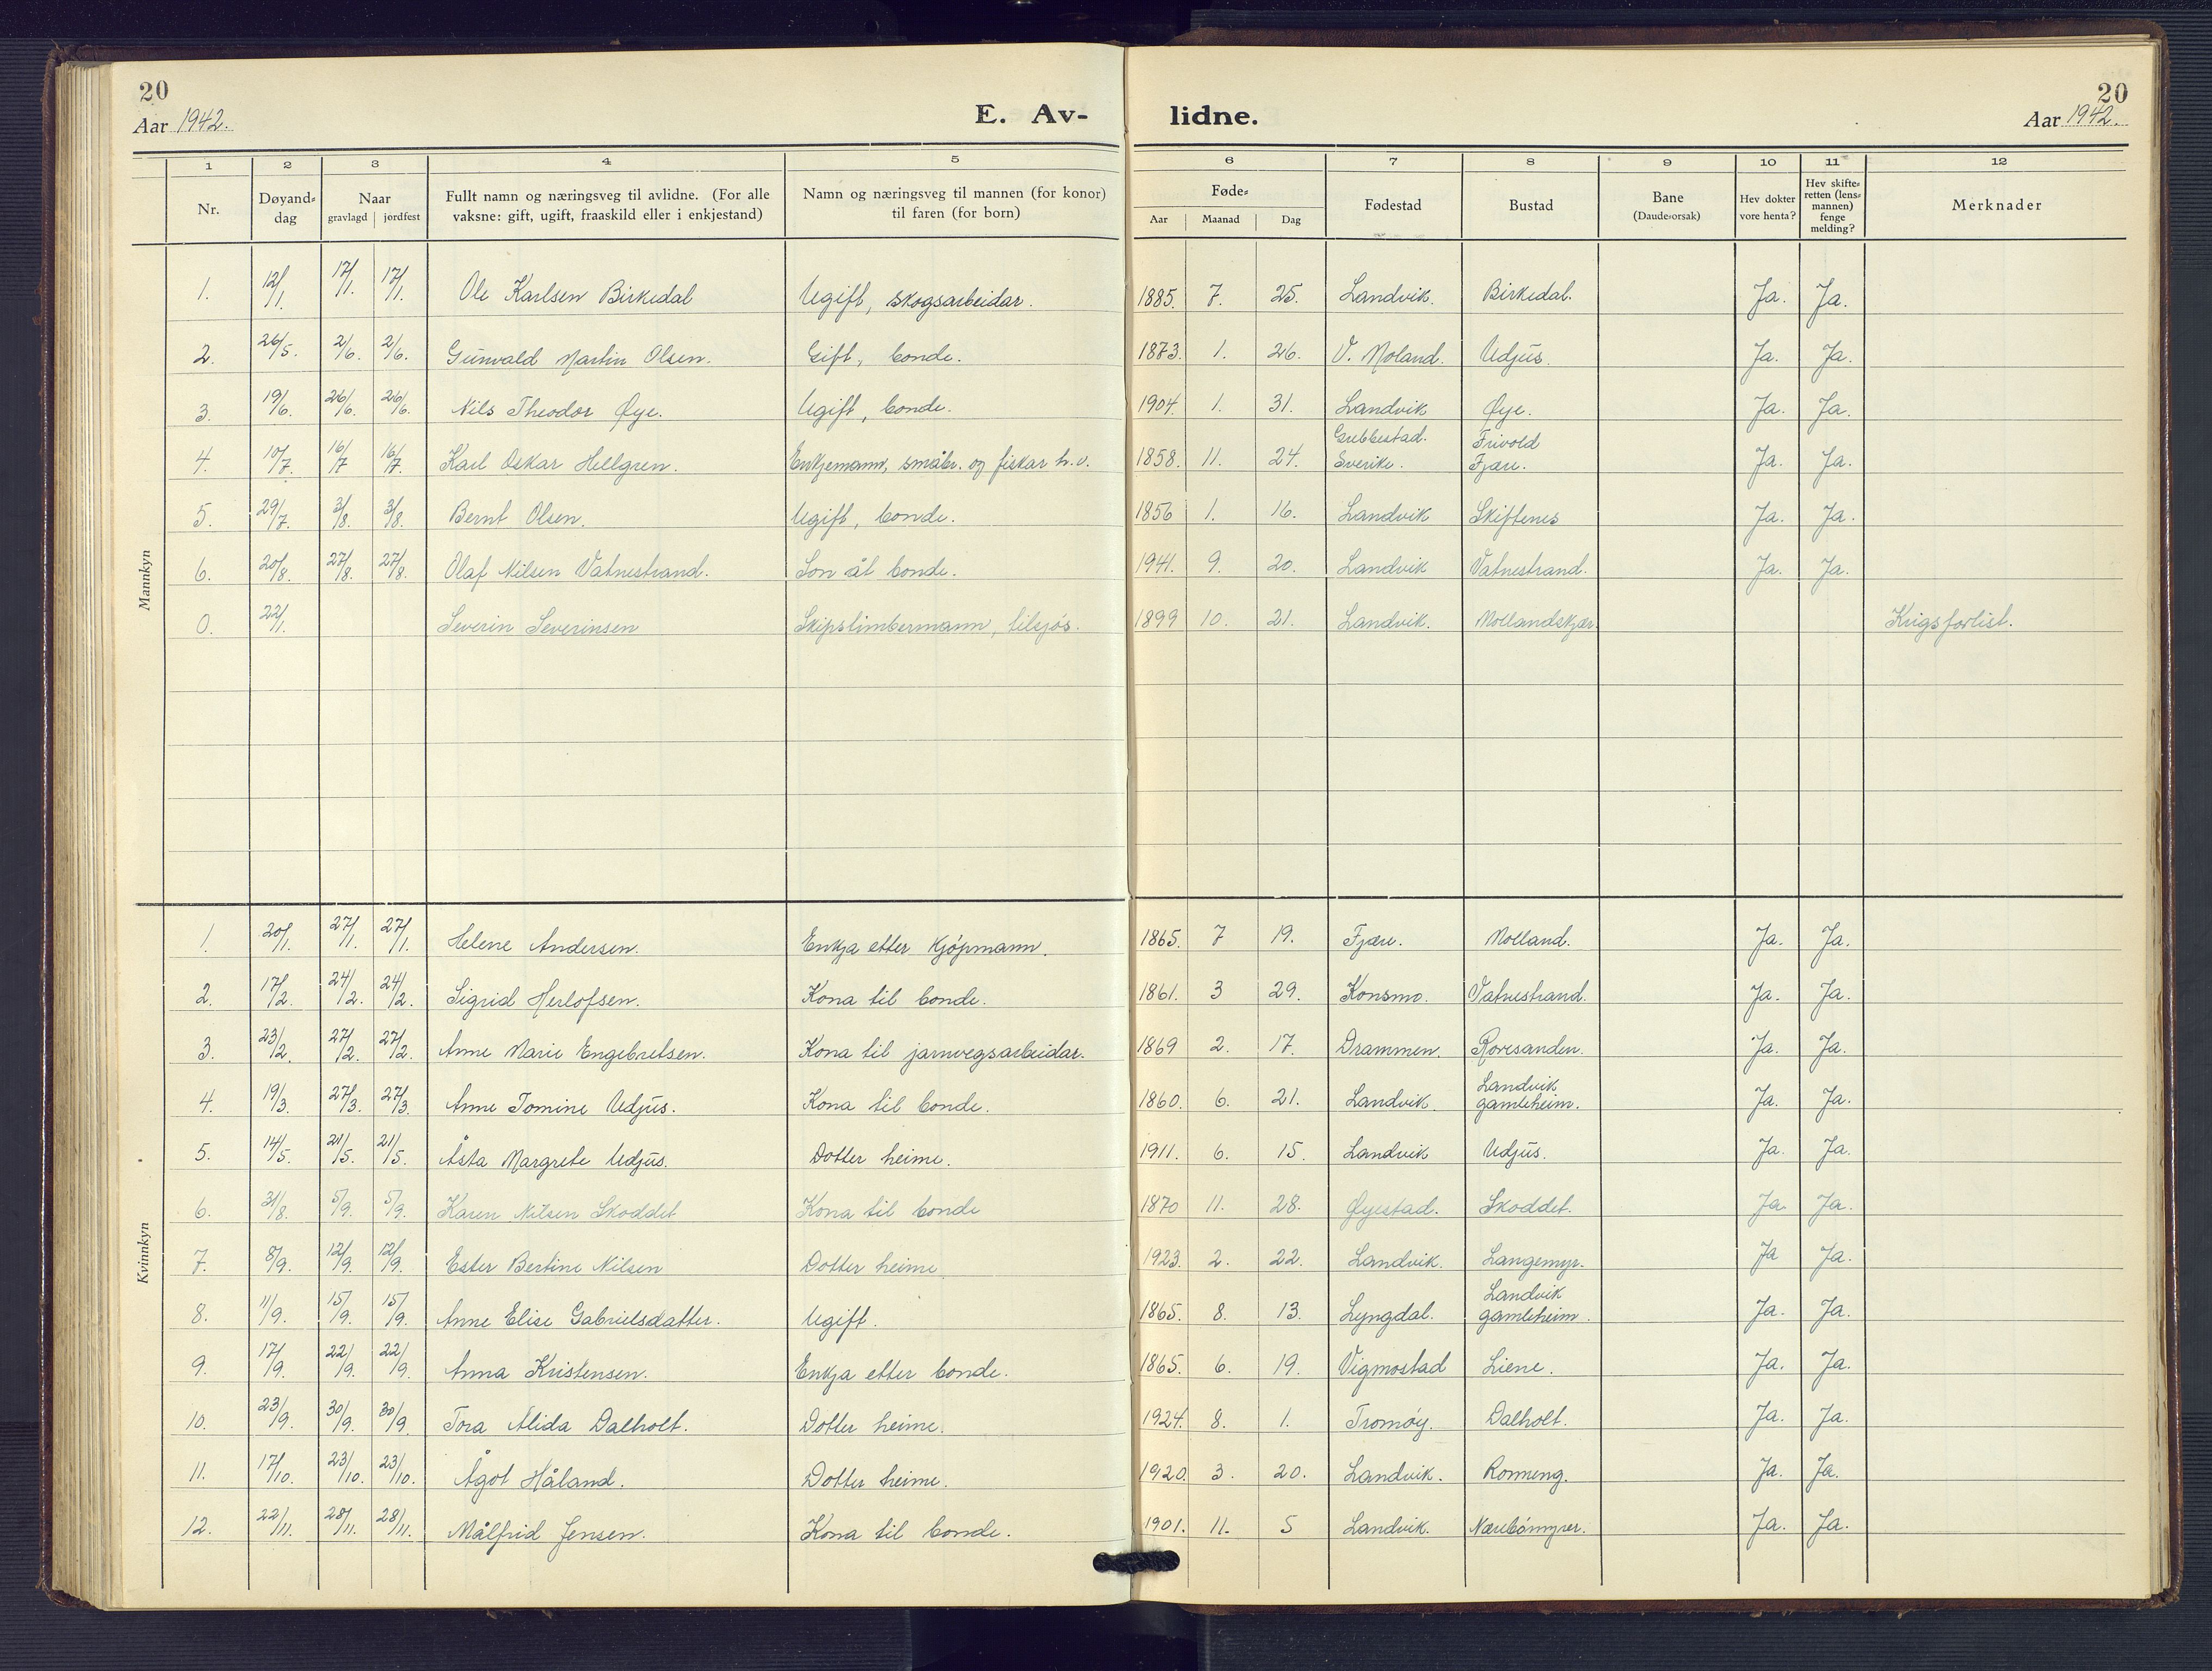 20
20
Aar 1942.
E. Av-
lidne.
Aar 1942.
1 2 3 4 5 6 7 8 9 10 11 12
Nr.
Døyand-
dag
Naar
gravlagd | jordfest
Fullt namn og næringsveg til avlidne. (For alle
vaksne: gift, ugift, fraaskild eller i enkjestand)
Namn og næringsveg til mannen (for konor)
til faren (for born)
Føde-
Aar Maanad Dag
Fødestad
Bustad
Bane
(Daude-orsak)
Hev dokter
vore henta?
Hev skifte-
retten (lens-
mannen)
fenge
melding?
Merknader
Mannkyn
1. 12/1. 17/1. 17/1. Ole Karlsen Birkedal Ugift, skogsarbeidar. 1885. 7. 25. Landvik. Birkedal. Ja. Ja.
2. 26/5. 2/6. 2/6. Gunvald Martin Olsen. Gift, bonde. 1873. 1. 26. V. Moland. Udjus. Ja. Ja.
3. 19/6. 26/6. 26/6. Nils Theodor Øye. Ugift, bonde. 1904. 1. 31. Landvik Øye. Ja. Ja.
Grebbestad. Frivold
4. 10/7. 16/7 16/7. Karl Oskar Hellgren. Enkjemann, småbr. og fiskar h.v. 1858. 11. 24. Sverike. Fjære. Ja. Ja.
5. 29/7. 3/8. 3/8. Bernt Olsen. Ugift, bonde. 1856 1. 16. Landvik Skiftenes Ja. Ja.
6. 20/8. 27/8. 27/8. Olaf Nilsen Vatnestrand. Son åt bonde. 1941. 9. 20. Landvik Vatnestrand. Ja. Ja.
0. 22/1. Severin Severinsen Skipstimbermann, tilsjøs. 1899 10. 21. Landvik. Mollandskjær. Krigsforlist.
Kvinnkyn
1. 20/1. 27/1. 27/1. Helene Andersen. Enkja etter kjøpmann. 1865. 7 19. Fjære. Molland. Ja. Ja.
2. 17/2. 24/2. 24/2. Sigrid Herlofsen. Kona til bonde. 1861. 3 29. Konsmo. Vatnestrand. Ja. Ja.
3. 23/2. 27/2. 27/2. Anne Marie Engebretsen. Kona til jarnvegsarbeidar. 1869 2. 17. Drammen. Roresanden. Ja. Ja.
Landvik
4. 19/3. 27/3. 27/3 Anne Tomine Udjus. Kona til bonde. 1860. 6. 21. Landvik. gamleheim. Ja. Ja.
5. 14/5. 21/5. 21/5. Åsta Margrete Udjus. Dotter heime. 1911. 6. 15. Landvik Udjus. Ja. Ja.
6. 31/8. 5/9. 5/9. Karen Nilsen Skoddet Kona til bonde 1870 11. 28. Øyestad. Skoddet. Ja. Ja.
7. 8/9. 12/9. 12/9. Ester Bertine Nilsen Dotter heime 1923. 2. 22. Landvik. Langemyr. Ja Ja.
Landvik
8. 11/9. 15/9. 15/9. Anne Elise Gabrielsdatter. Ugift. 1865. 8. 13. Lyngdal. gamleheim. Ja. Ja.
9. 17/9. 22/9. 22/9. Anna Kristensen. Enkja etter bonde. 1865. 6. 19. Vigmostad Liene. Ja. Ja.
10. 23/9. 30/9. 30/9. Tora Alida Dalholt. Dotter heime. 1924. 8. 1. Tromøy. Dalholt. Ja. Ja.
11. 17/10. 23/10. 23/10. Ågot Håland. Dotter heime. 1920. 3. 20. Landvik. Ronneng. Ja. Ja.
12. 22/11. 28/11. 28/11. Målfrid Jensen. Kona til bonde. 1901. 11. 5 Landvik. Ja. Ja.